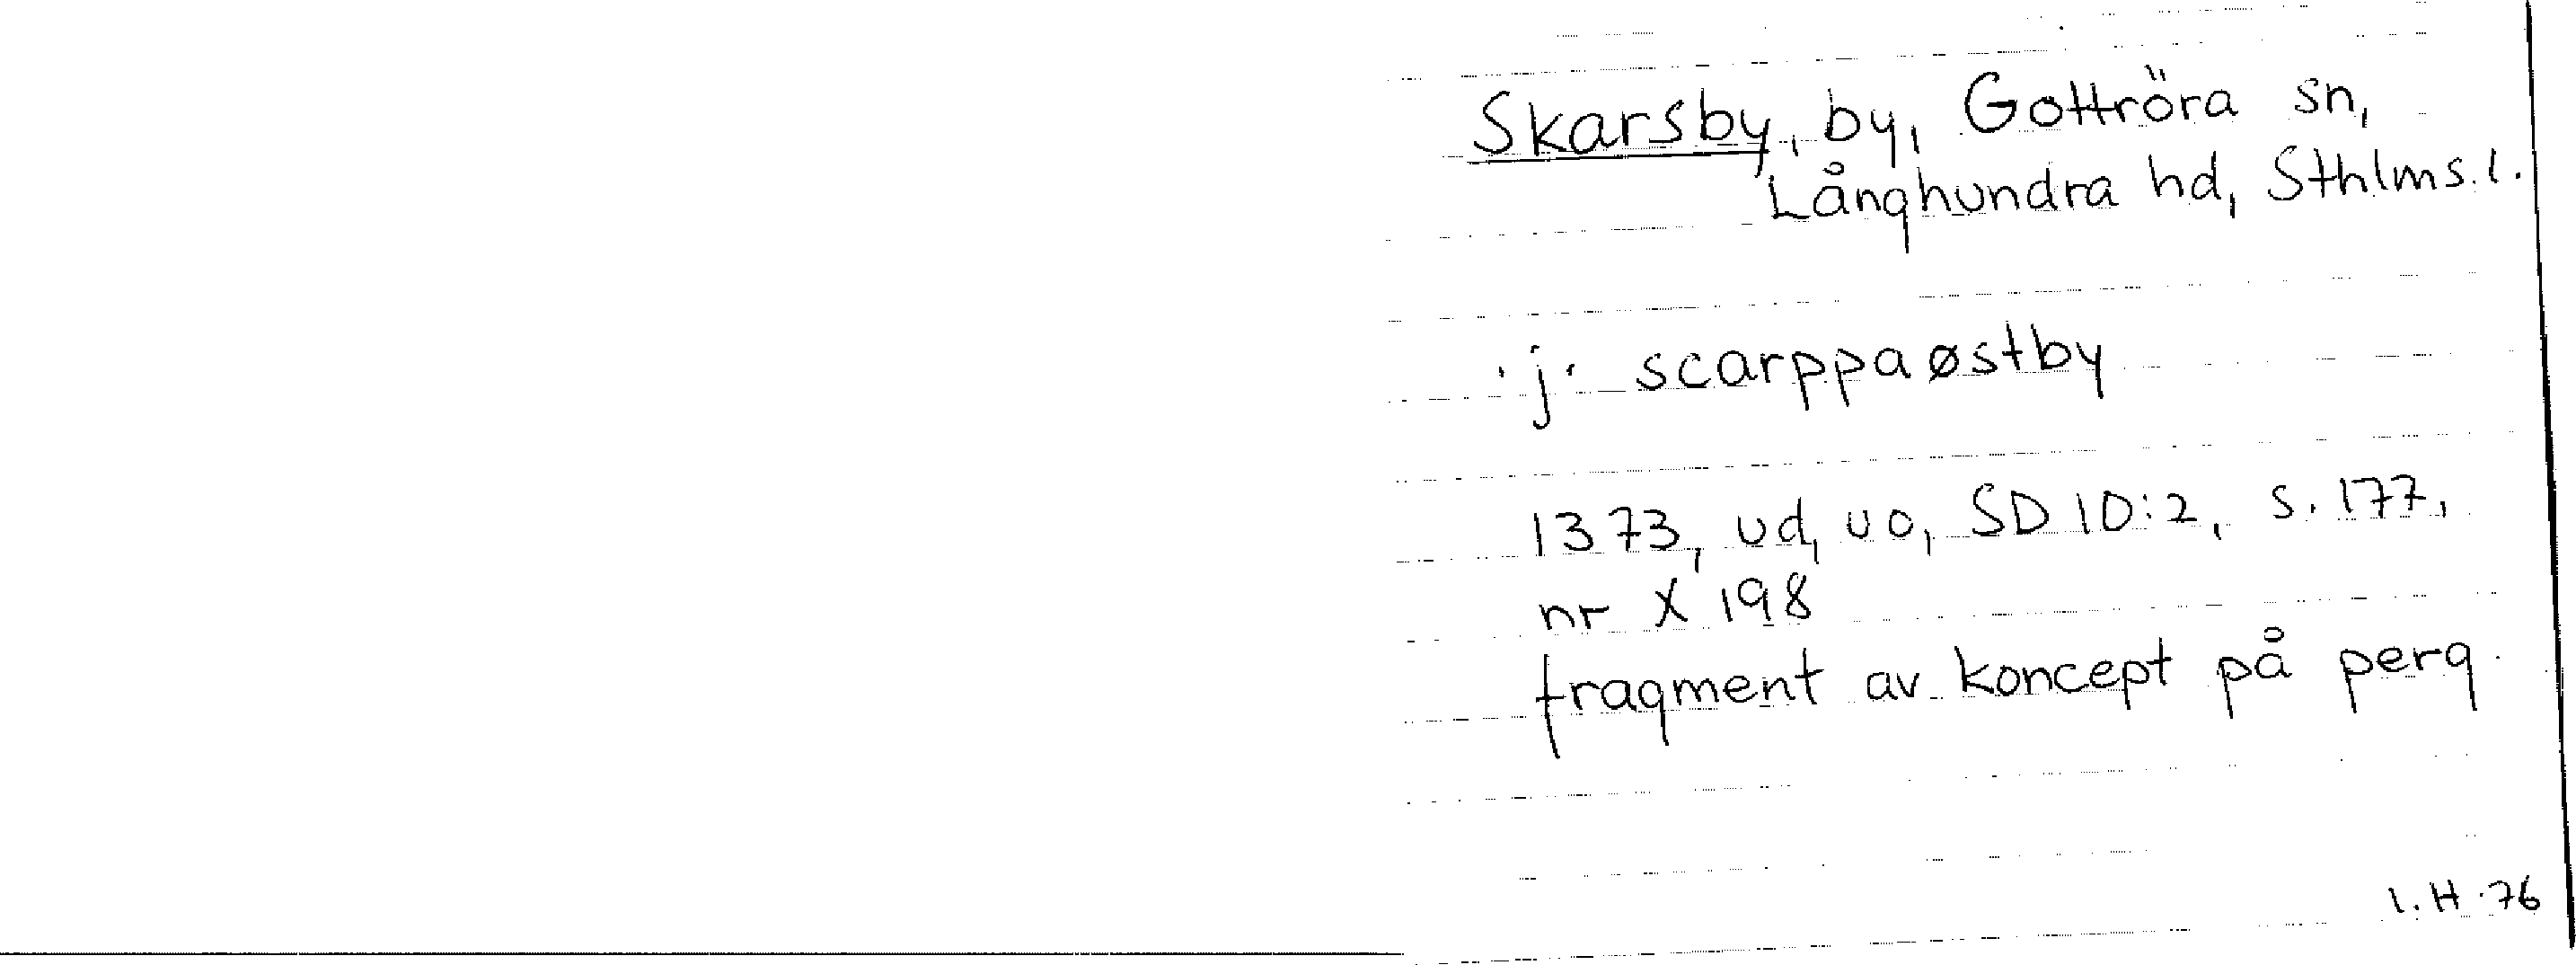 Skarsby, by, Gottröra sn,
Långhundra hd, Sthlms. l.
·j· scarppaøstby
1373, ud, uo, SD 10:2, s. 177,
nr X 198
fragment av koncept på perg.
I. H. 76